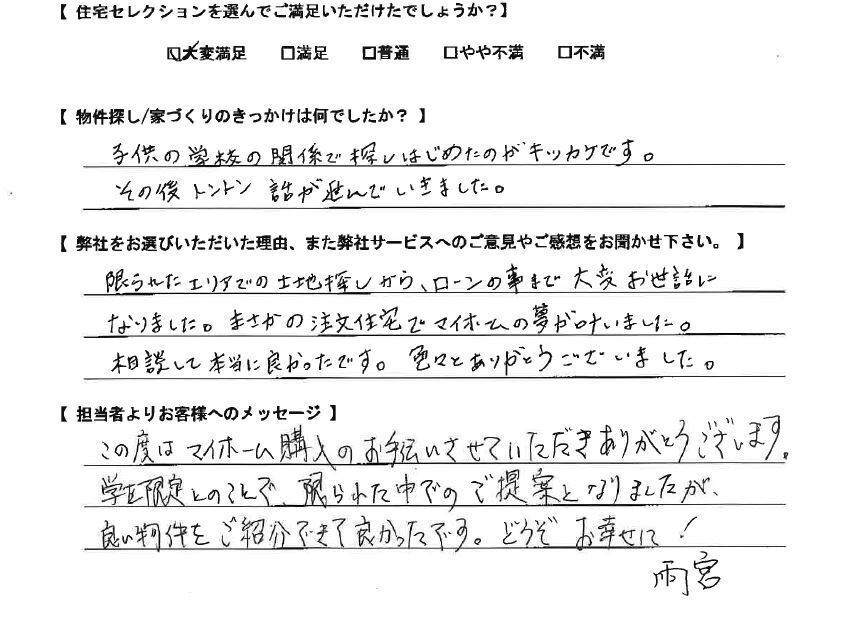 【 住宅セレクションを選んでご満足いただけたでしょうか?】
☑大変満足 □満足 □普通 □やや不満 □不満
【 物件探し/家づくりのきっかけは何でしたか? 】
子供の学校の関係で探しはじめたのがキッカケです。
その後トントン話が進んでいきました。
【 弊社をお選びいただいた理由、また弊社サービスへのご意見やご感想をお聞かせ下さい。 】
限られたエリアでの土地探しから、ローンの事まで大変お世話に
なりました。まさかの注文住宅でマイホームの夢が叶いました。
相談して本当に良かったです。色々とありがとうございました。
【 担当者よりお客様へのメッセージ 】
この度はマイホーム購入のお手伝いさせていただきありがとうございます。
学区限定とのことで、限られた中でのご提案となりましたが、
良い物件をご紹介できて良かったです。どうぞお幸せに!
雨宮